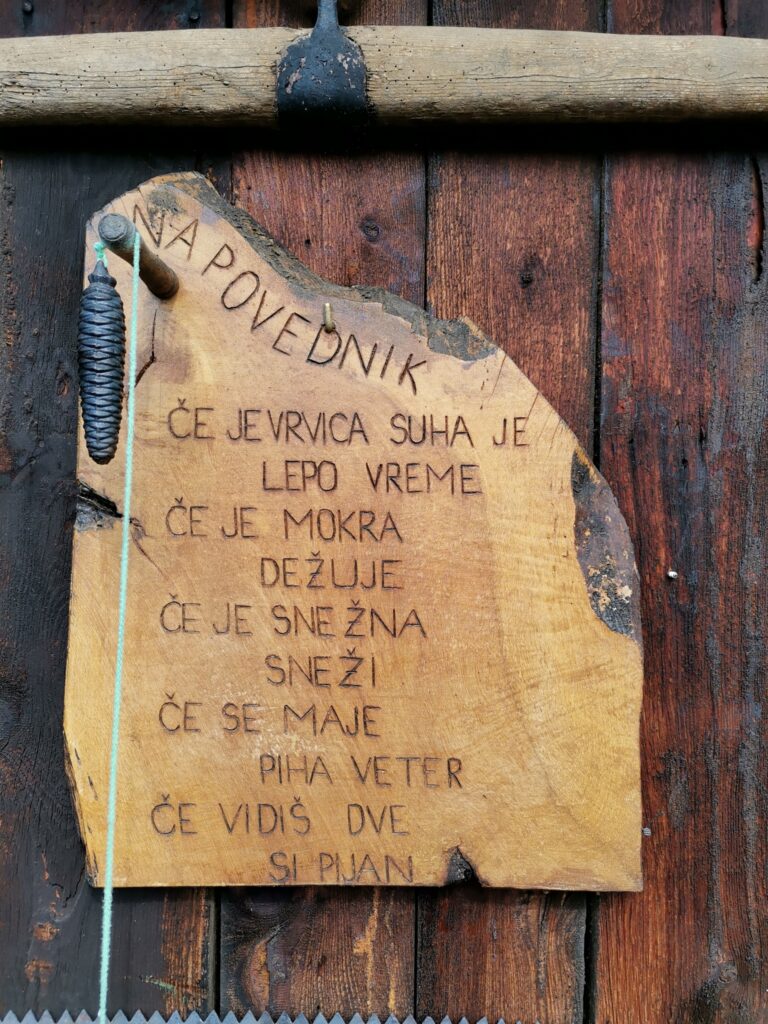 NAPOVEDNIK
ČE JE VRVICA SUHA JE
LEPO VREME
ČE JE MOKRA
DEŽUJE
ČE JE SNEŽNA
SNEŽI
ČE SE MAJE
PIHA VETER
ČE VIDIŠ DVE
SI PIJAN